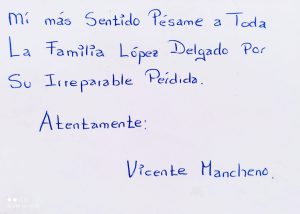 Mí más Sentido Pésame a Toda
La Familia López Delgado Por
Su Irreparable Pérdida.
Atentamente:
Vicente Mancheno.